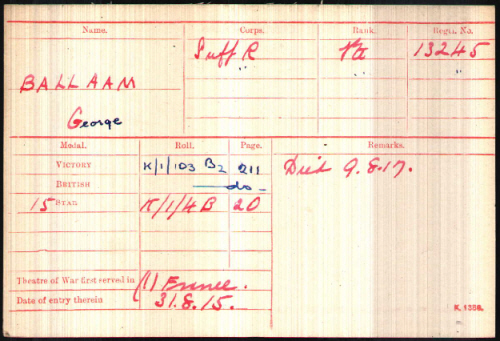 Name. Corps. Rank. Regtl. No.
BALLAAM Suff R Pte 13245
George " "
Medal. Roll. Page. Remarks.
VICTORY K/1/103 B2 211 Died 9.8.17.
BRITISH — do —
15 STAR K/1/4B 20
Theatre of War first served in (1) France.
Date of entry therein 31.8.15.
K. 1380.